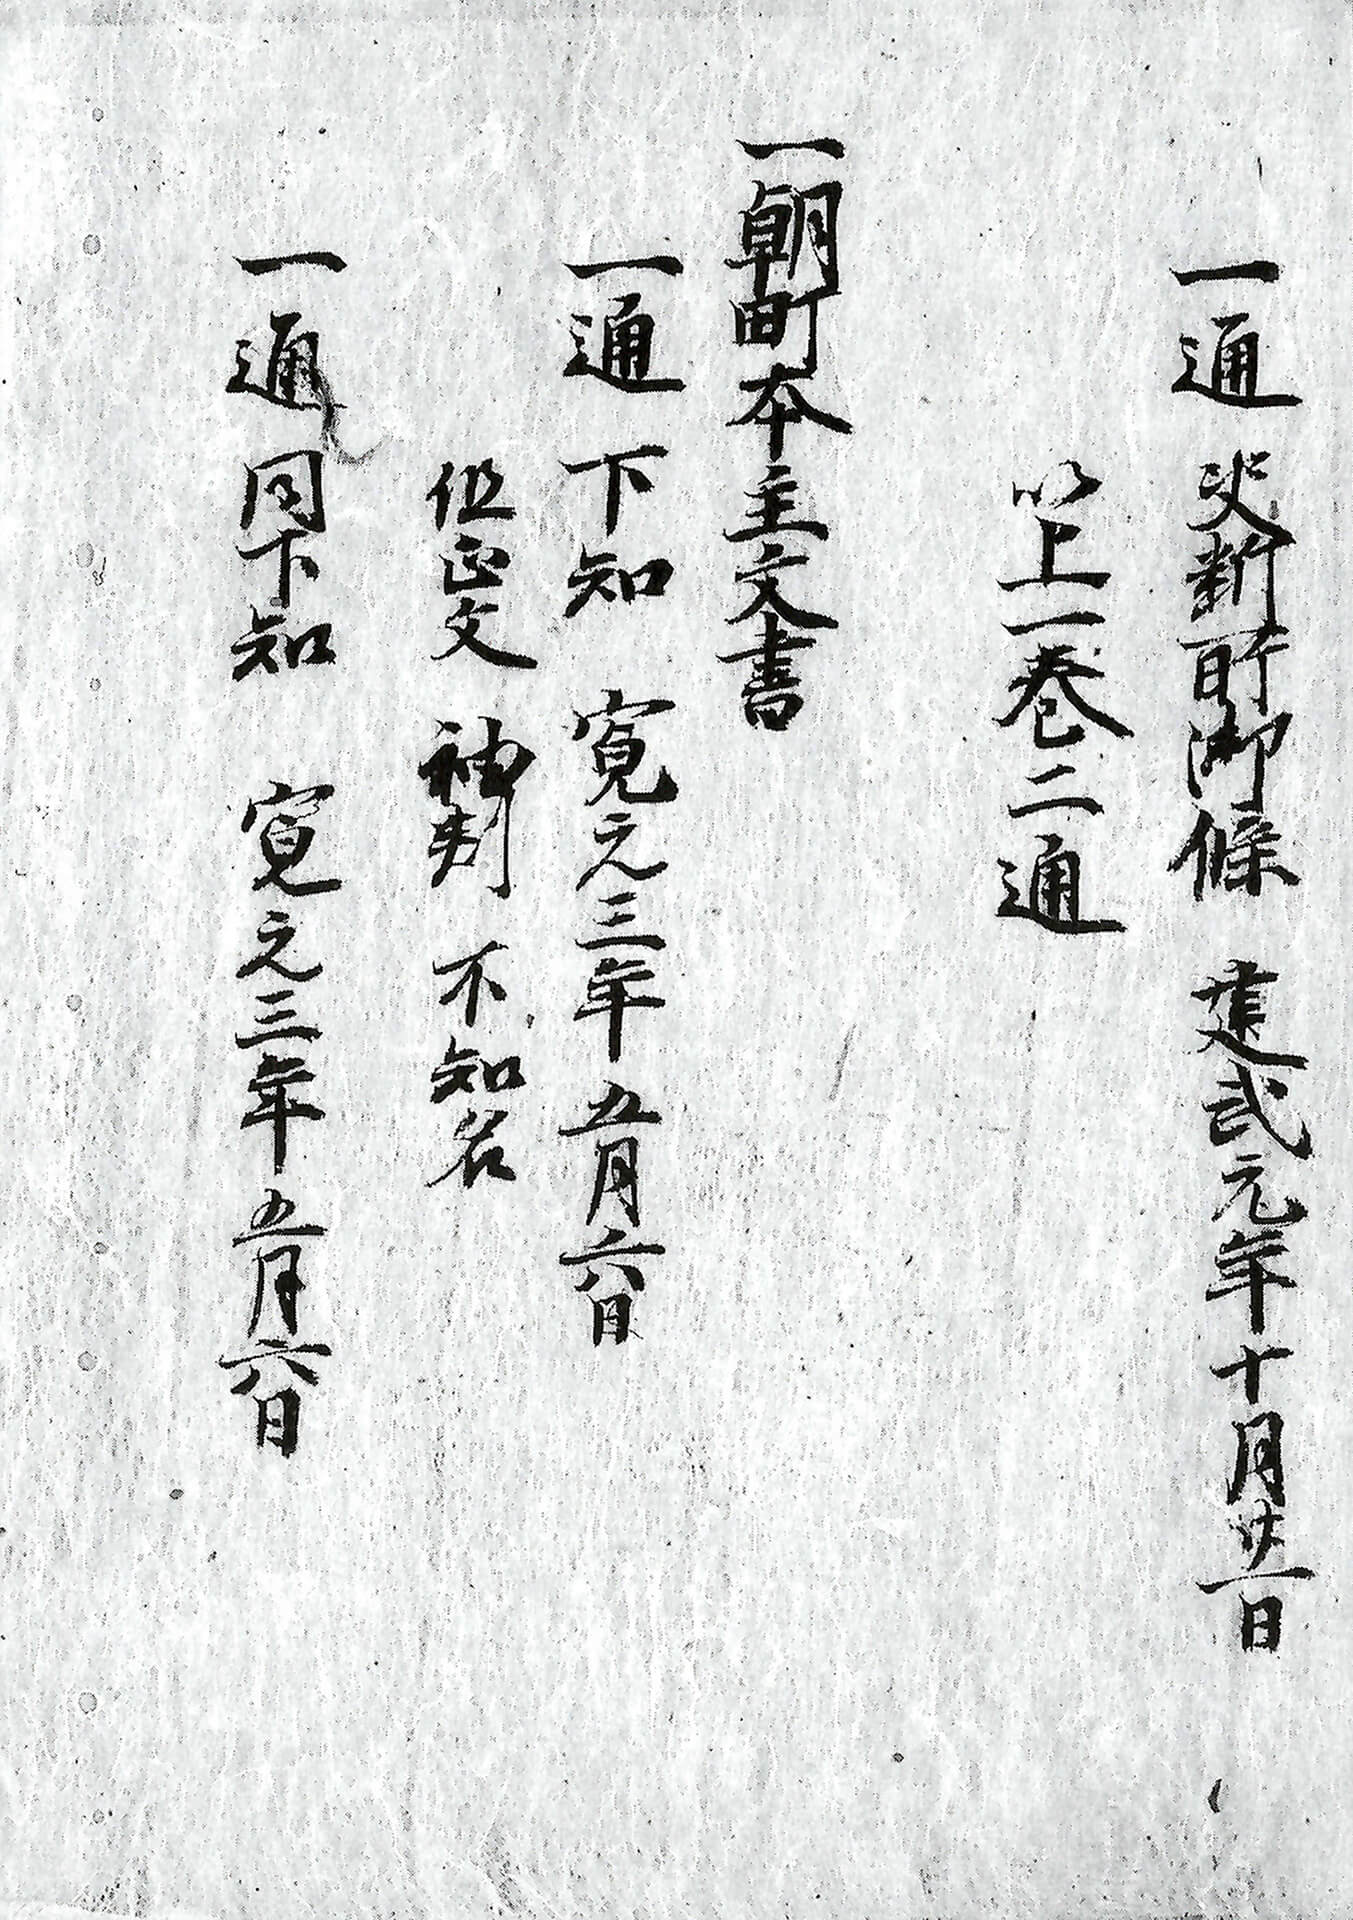 一通 决断所御牒 建武元年十月廿一日
以上一巻二通
一朝町本主文書
一通 下知 寛元三年五月六日
但正文 袖判 不知名
一通 同下知 寛元三年五月六日